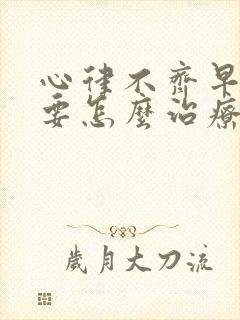 心律不齊早
要怎麼治療
歲月大刀流